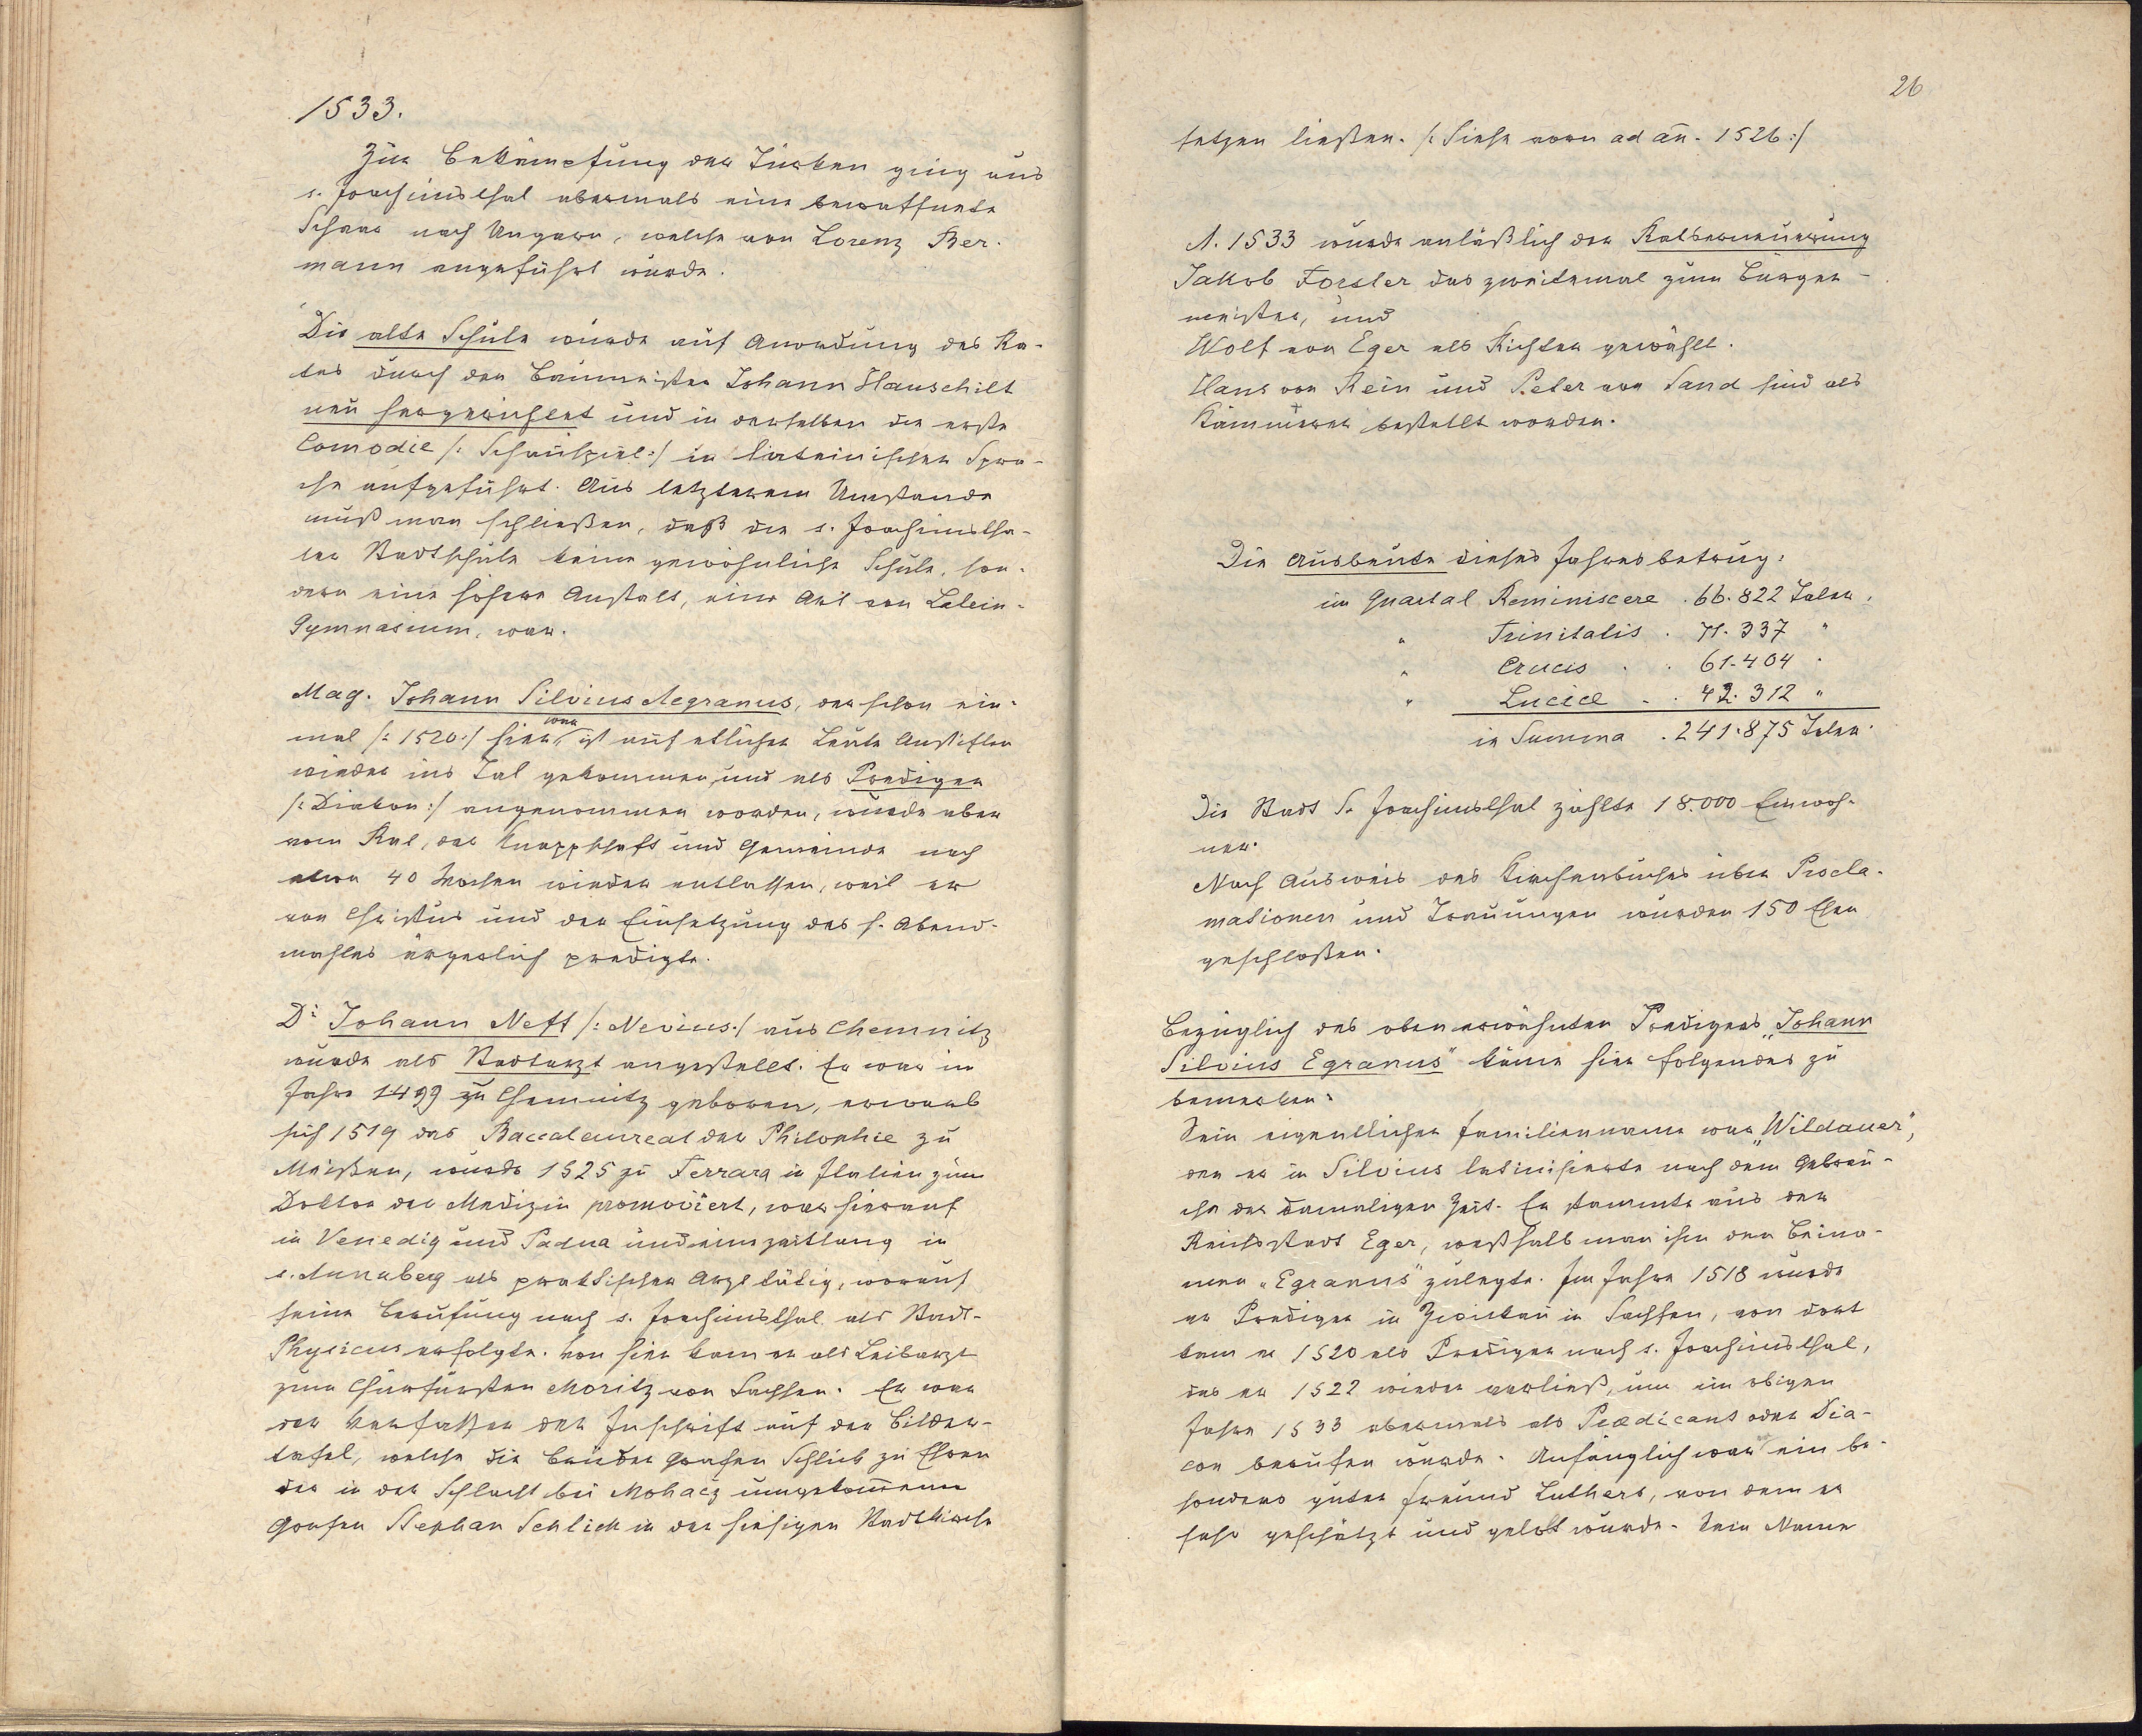 1533.
Zur Bekämpfung der Türken ging aus
s. Joachimsthal abermals eine bewaffnete
Schaar nach Ungarn, welche von Lorenz Ber-
mann angeführt wurde.
Die alte Schule wurde auf Anordnung des Ra-
tes durch den Baumeister Johann Hauschilt
neu hergerichtet und in derselben die erste
Comodie /: Schauspiel :/ in lateinischer Spra-
che aufgeführt. Aus letzterem Umstande
muß man schließen, daß die s. Joachimstha-
ler Stadtschule keine gewöhnliche Schule, son-
dern eine höhere Anstalt, eine Art von Latein-
Gymnasium, war.
Mag. Johann Silvius Aegranus, der schon ein-
mal /: 1520 :/ hier war, ist auf etlicher Leute Anstiften
wieder ins Tal gekommen und als Prediger
/: Diakon :/ angenommen worden, wurde aber
vom Rat, der Knappschaft und Gemeinde nach
etwa 40 Wochen wieder entlassen, weil er
von Christus und der Einsetzung des h. Abend-
mahles ärgerlich predigte.
Dr Johann Neff /: Nevius :/ aus Chemnitz
wurde als Stadtarzt angestellt. Er war im
Jahre 1499 zu Chemnitz geboren, erwarb
sich 1519 das Baccalaureat der Philophie zu
Meißen, wurde 1525 zu Ferrara in Italien zum
Doktor der Medizin promoviert, war hierauf
in Venedig und Padua und eine zeitlang in
s. Annaberg als praktischer Arzt tätig, worauf
seine Berufung nach s. Joachimsthal als Stadt-
Physicus erfolgte. Von hier kam er als Leibarzt
zum Churfürsten Moritz von Sachsen. Er war
der Verfasser der Inschrift auf der Bilder-
tafel, welche die Brüder Grafen Schlick zu Ehren
des in der Schlacht bei Mohacz umgekommenen
Grafen Stephan Schlick in der hiesigen Stadtkirche
26
setzen ließen. /: Siehe vorn ad an̄. 1526 :/
A. 1533 wurde anläßlich der Ratserneuerung
Jakob Forster das zweitemal zum Bürger-
meister, und
Wolf von Eger als Richter gewählt.
Hans von Rein und Peter von Sand sind als
Kämmerer bestellt worden.
Die Ausbeute dieses Jahres betrug:
im Quartal Reminiscere . 66.822 Taler.
" Trinitatis . 71.337 "
" Crucis . . 61.404 "
" Luciæ . . 42.312 "
in Summa . 241.875 Taler.
Die Stadt S. Joachimsthal zählte 18.000 Einwoh-
ner.
Nach Ausweis des Kirchenbuches über Procla-
mationen und Trauungen wurden 150 Ehen
geschloßen.
Bezüglich des oben erwähnten Predigers „Johann
Silvius Egranus" käme hier folgendes zu
bemerken:
Sein eigentlicher Familienname war „Wildauer",
den er in Silvius latinisierte nach dem Gebrau-
che der damaligen Zeit. Er stammte aus der
Reichsstadt Eger, weßhalb man ihm den Beina-
men „Egranus" zulegte. Im Jahre 1518 wurde
er Prediger in Zwickau in Sachsen, von dort
kam er 1520 als Prediger nach s. Joachimsthal,
das er 1522 wieder verließ, um im obigen
Jahre 1533 abermals als Prædicant oder Dia-
con berufen wurde. Anfänglich war ein be-
sonders guter Freund Luthers, von dem er
sehr geschätzt und gelobt wurde. Sein Name